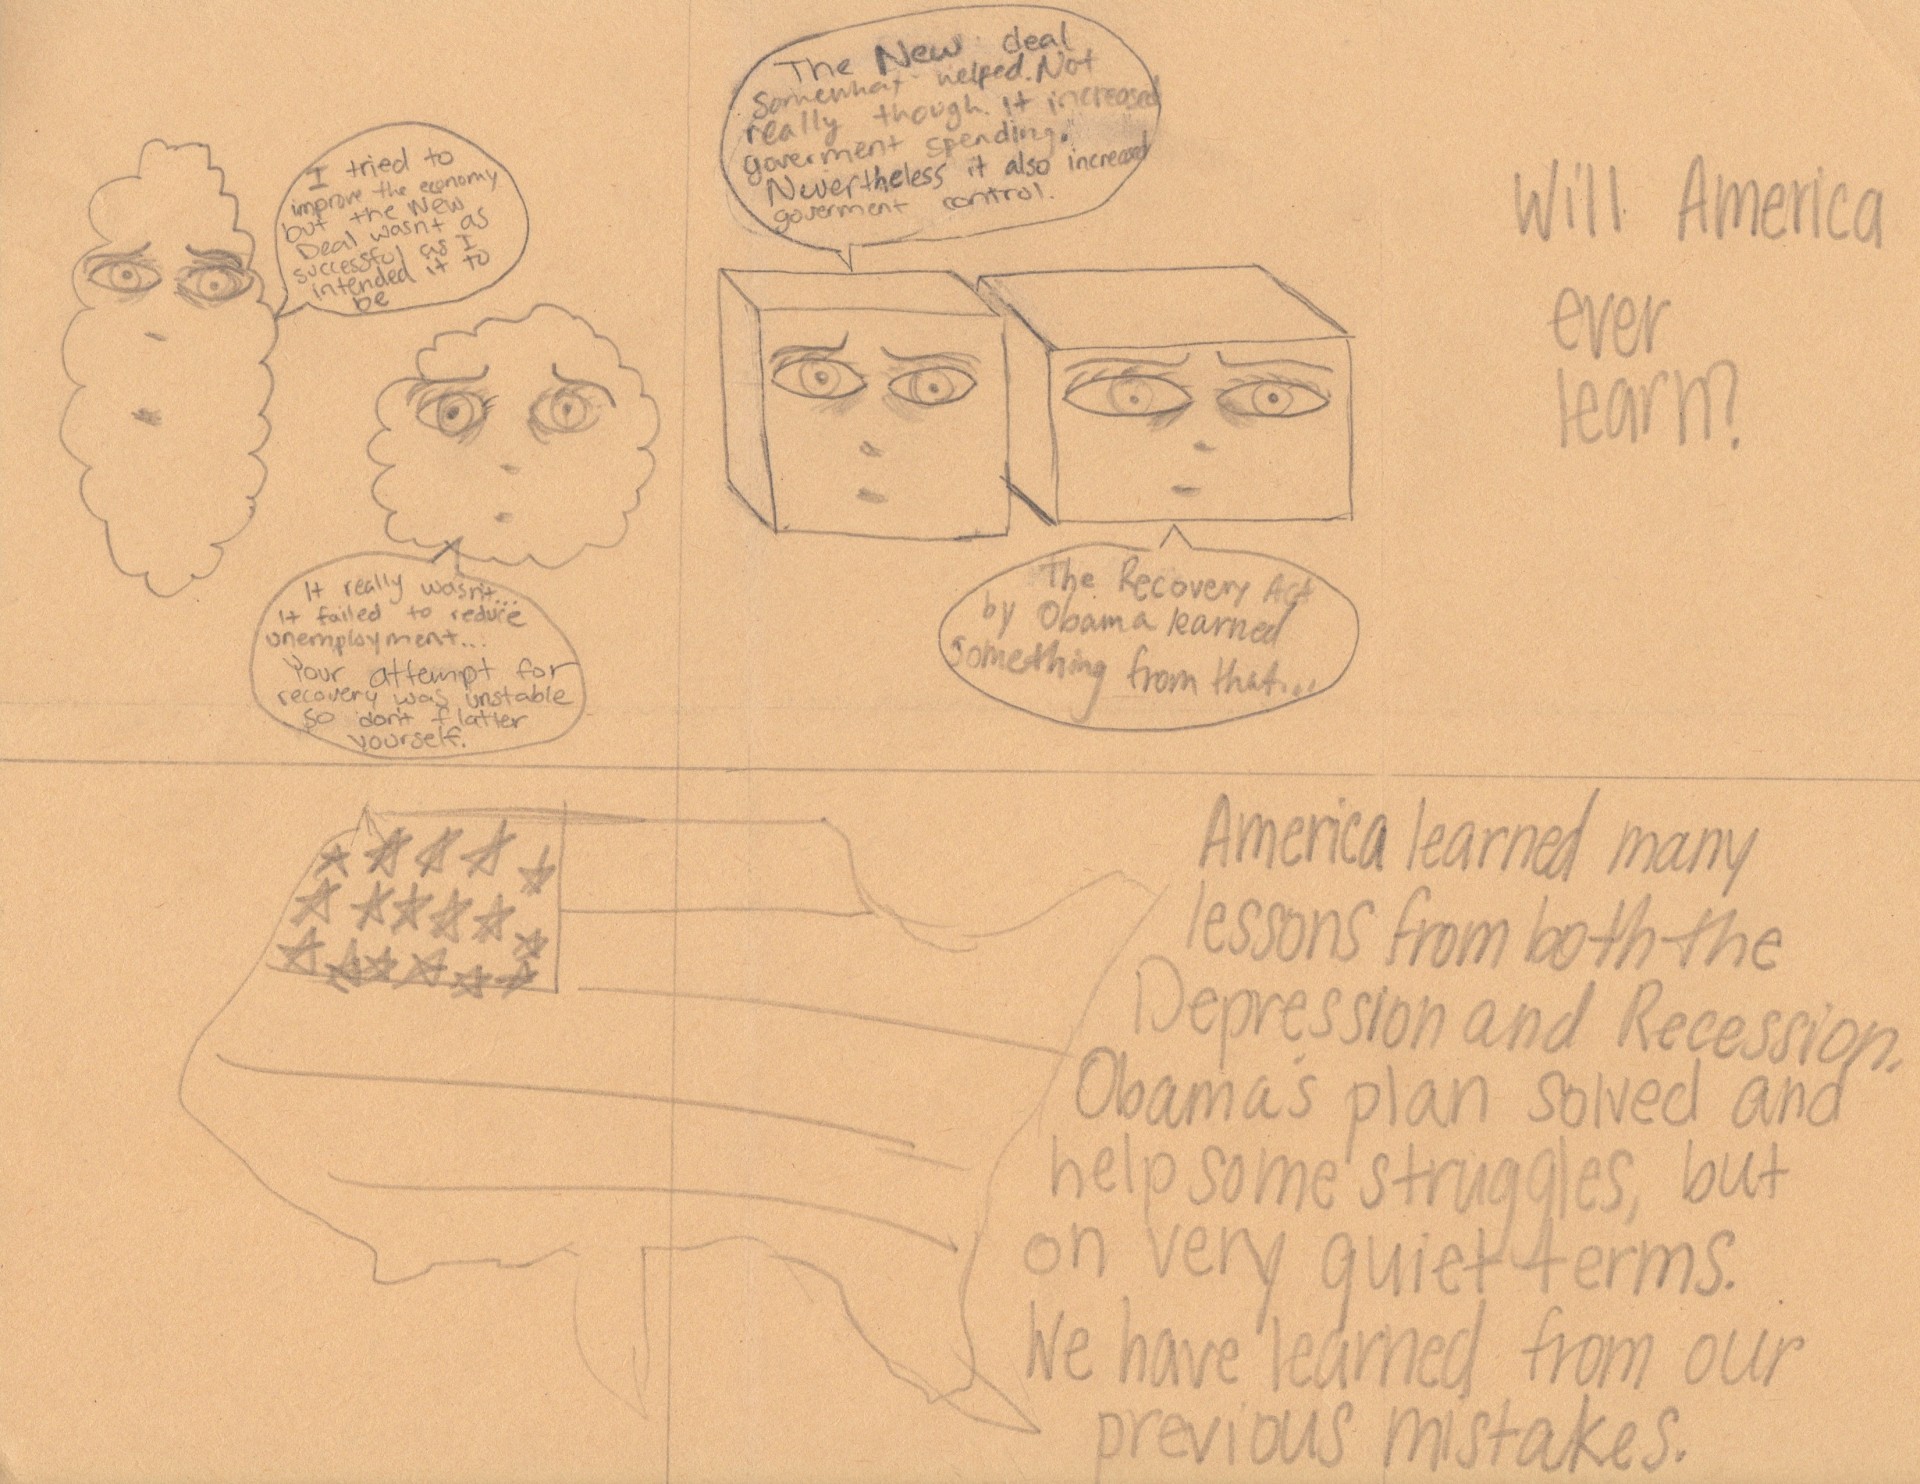 I tried to
improve the economy
but the New
Deal wasnt as
successful as I
intended it to
be
It really wasn't...
it failed to reduce
unemployment...
Your attempt for
recovery was unstable
so don't flatter
yourself.
The New deal
somewhat helped. Not
really though. it increased
goverment spending.
Nevertheless it also increased
goverment control.
The Recovery Act
by Obama learned
something from that...
Will America
ever
learn?
America learned many
lessons from both the
Depression and Recession.
Obama's plan solved and
help some struggles, but
on very quiet terms.
We have learned from our
previous mistakes.